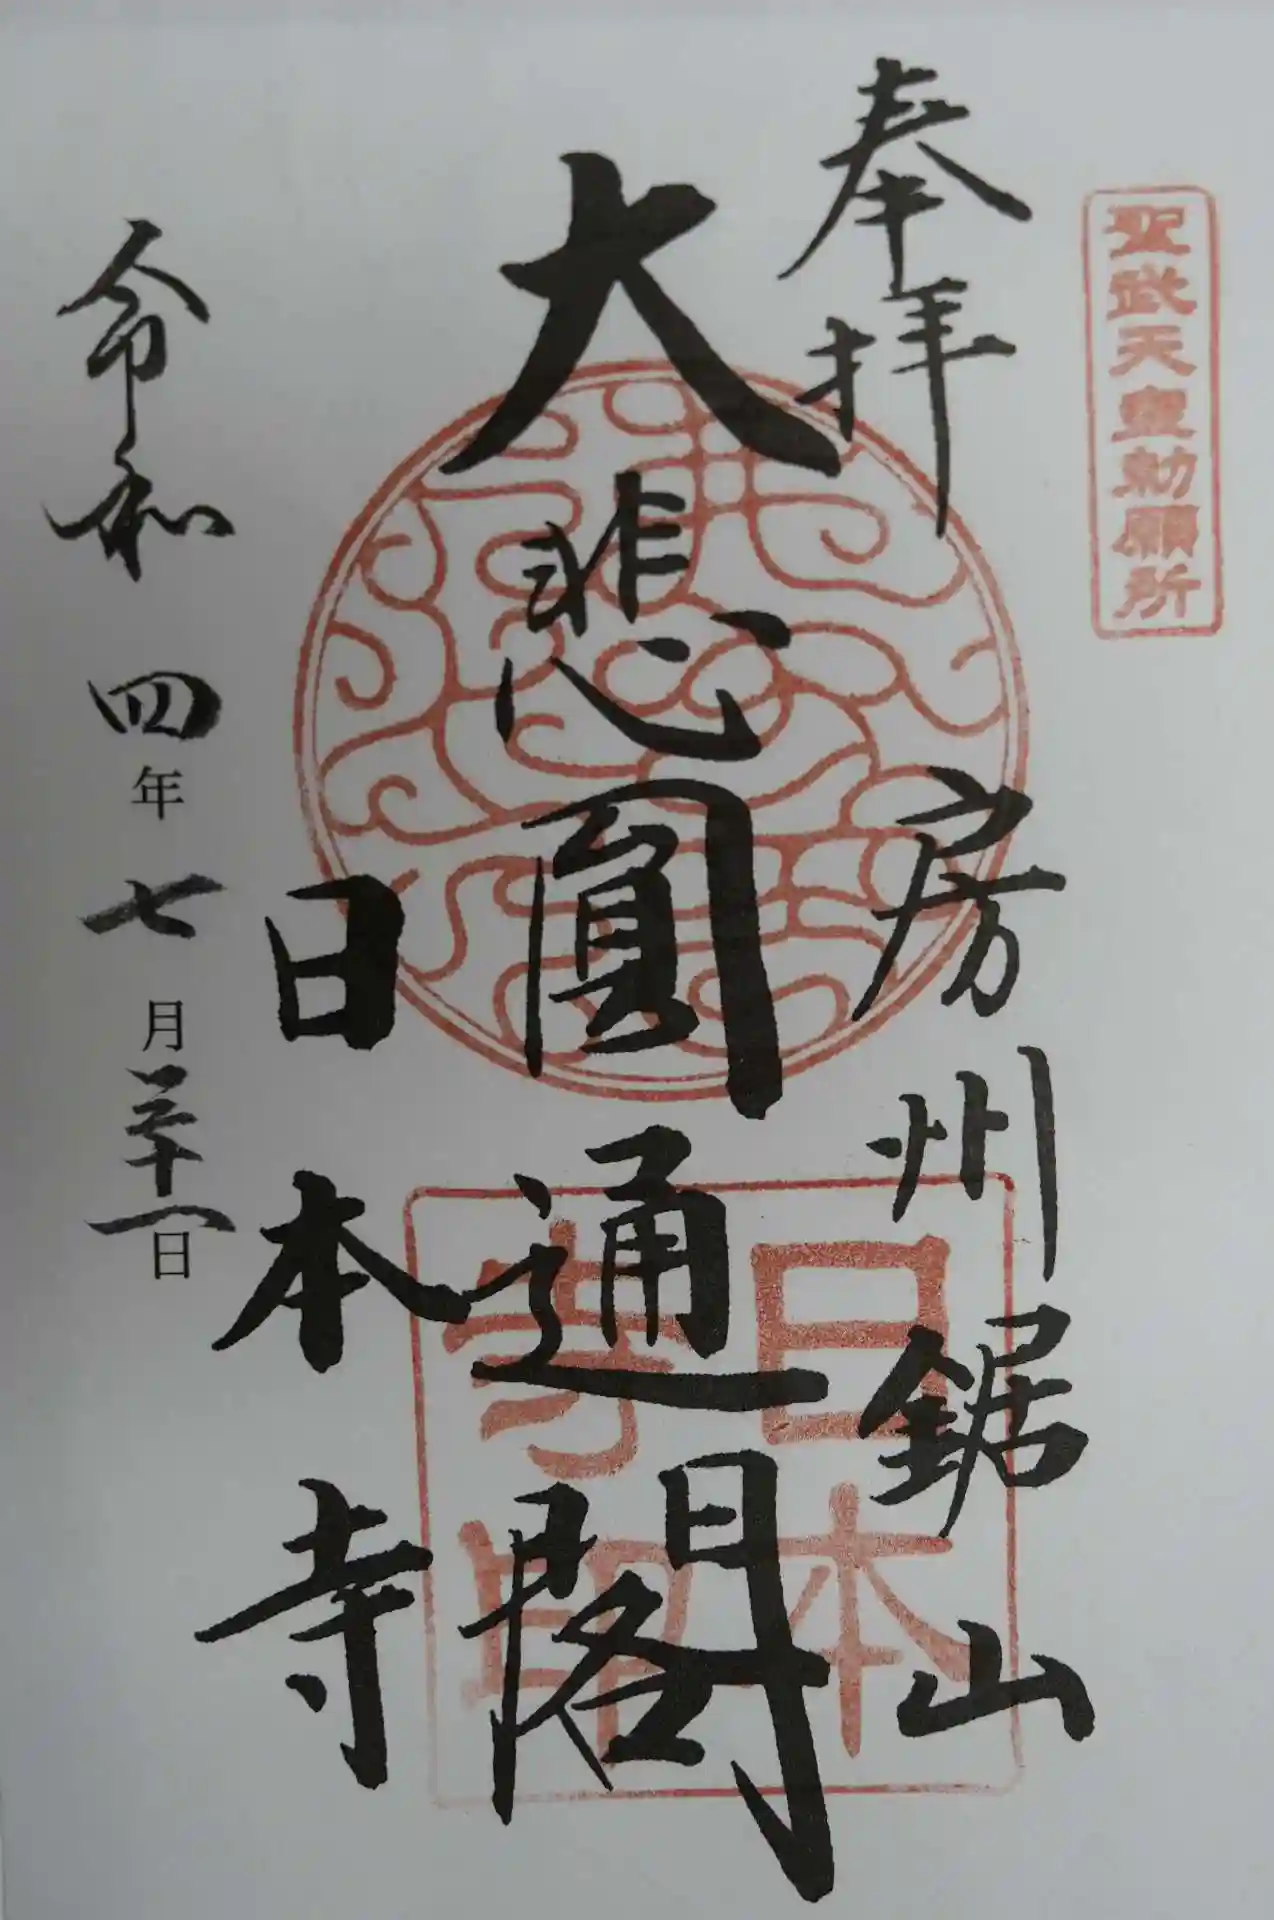 聖武天皇勅願所
奉拝
房州鋸山
大悲圓通閣
日本寺印
日本寺
令和四年七月三十一日